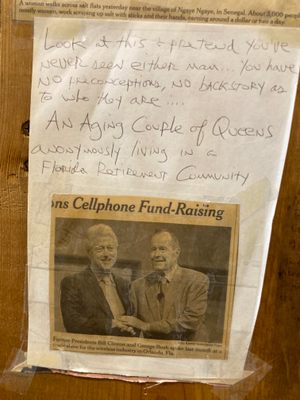 A woman walks across salt flats yesterday near the village of Ngaye Ngaye, in Senegal. About 3,000 people,
mostly women, work scraping up salt with sticks and their hands, earning around a dollar or two a day.
Look at this & pretend you've
never seen either man... you have
NO preconceptions, NO backstory as
to who they are....
AN Aging Couple of Queens
anonymously living in a
Florida Retirement Community
ons Cellphone Fund-Raising
Former Presidents Bill Clinton and George Bush spoke last month at a
trade show for the wireless industry in Orlando, Fla.